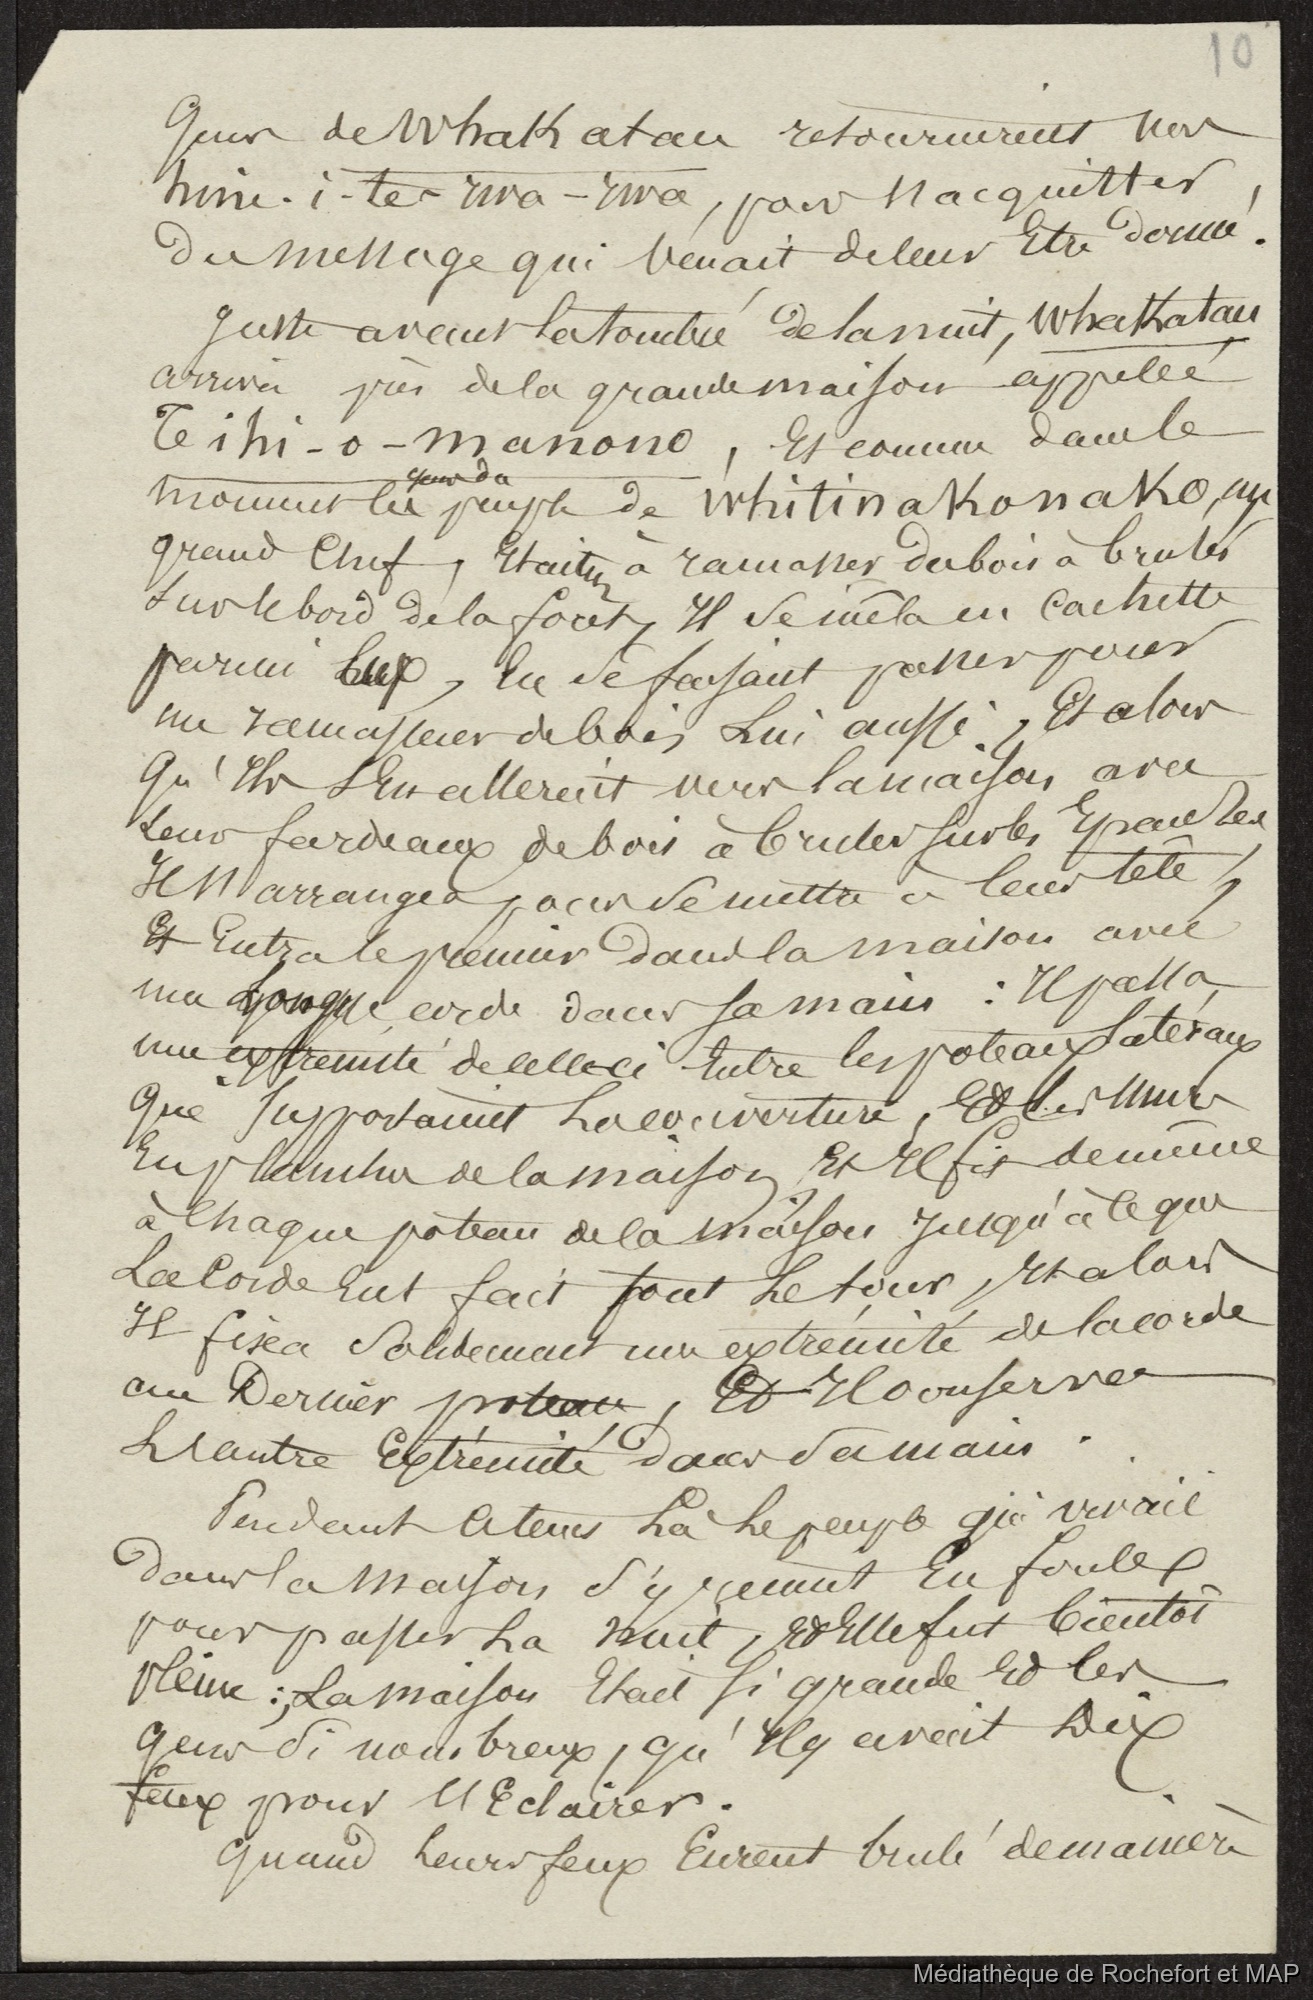 10
Gens de Whakatau retournèrent vers
hine-i-te-rwa-rwa, pour s'acquitter
Du message qui venait de leur Etre donné.
Juste avant La tombée de la nuit, Whakatau
arriva près de la grande maison appelée
Te ihi-o-manono, Et comme dans le
gens du
moment les peuple de Whitinakonako, un
grand Chef, Etaient à ramasser du bois à bruler
Sur le bord de la foret, Il se mêla en cachette
parmi Eux, En se faisant passer pour
un ramasseur de bois Lui aussi, Et alors
qu'Ils s'En allerent vers la maison avec
Leurs fardeaux de bois à bruler sur les Epaules,
Il s'arrangea pour se mettre à leur tête,
Et Entra le premier Dans la maison avec
une Longue corde dans sa main : Il passa
une extremité de celle ci Entre les poteaux Latéraux
que supportaient La couverture, Et les Murs
En planches de la maison, Et Il fit de même
à Chaque poteau de la Maison jusqu'à ce que
La Corde Eut fait tout Le tour, Et alors
Il fixa Solidement une extrémité de la corde
au Dernier poteau, Et Il conserva
L'autre Extrémité dans Sa main.
Pendant Ce temps Là Le peuple qui vivait
Dans la Maison s'y rendit En foule
pour passer La Nuit, Et Elle fut bientôt
pleine ; La Maison Etait si grande Et les
gens si nombreux, qu'Il y avait Dix
feux pour l'Eclairer.
Quand Leurs feux Eurent brulé de manière
Médiathèque de Rochefort et MAP